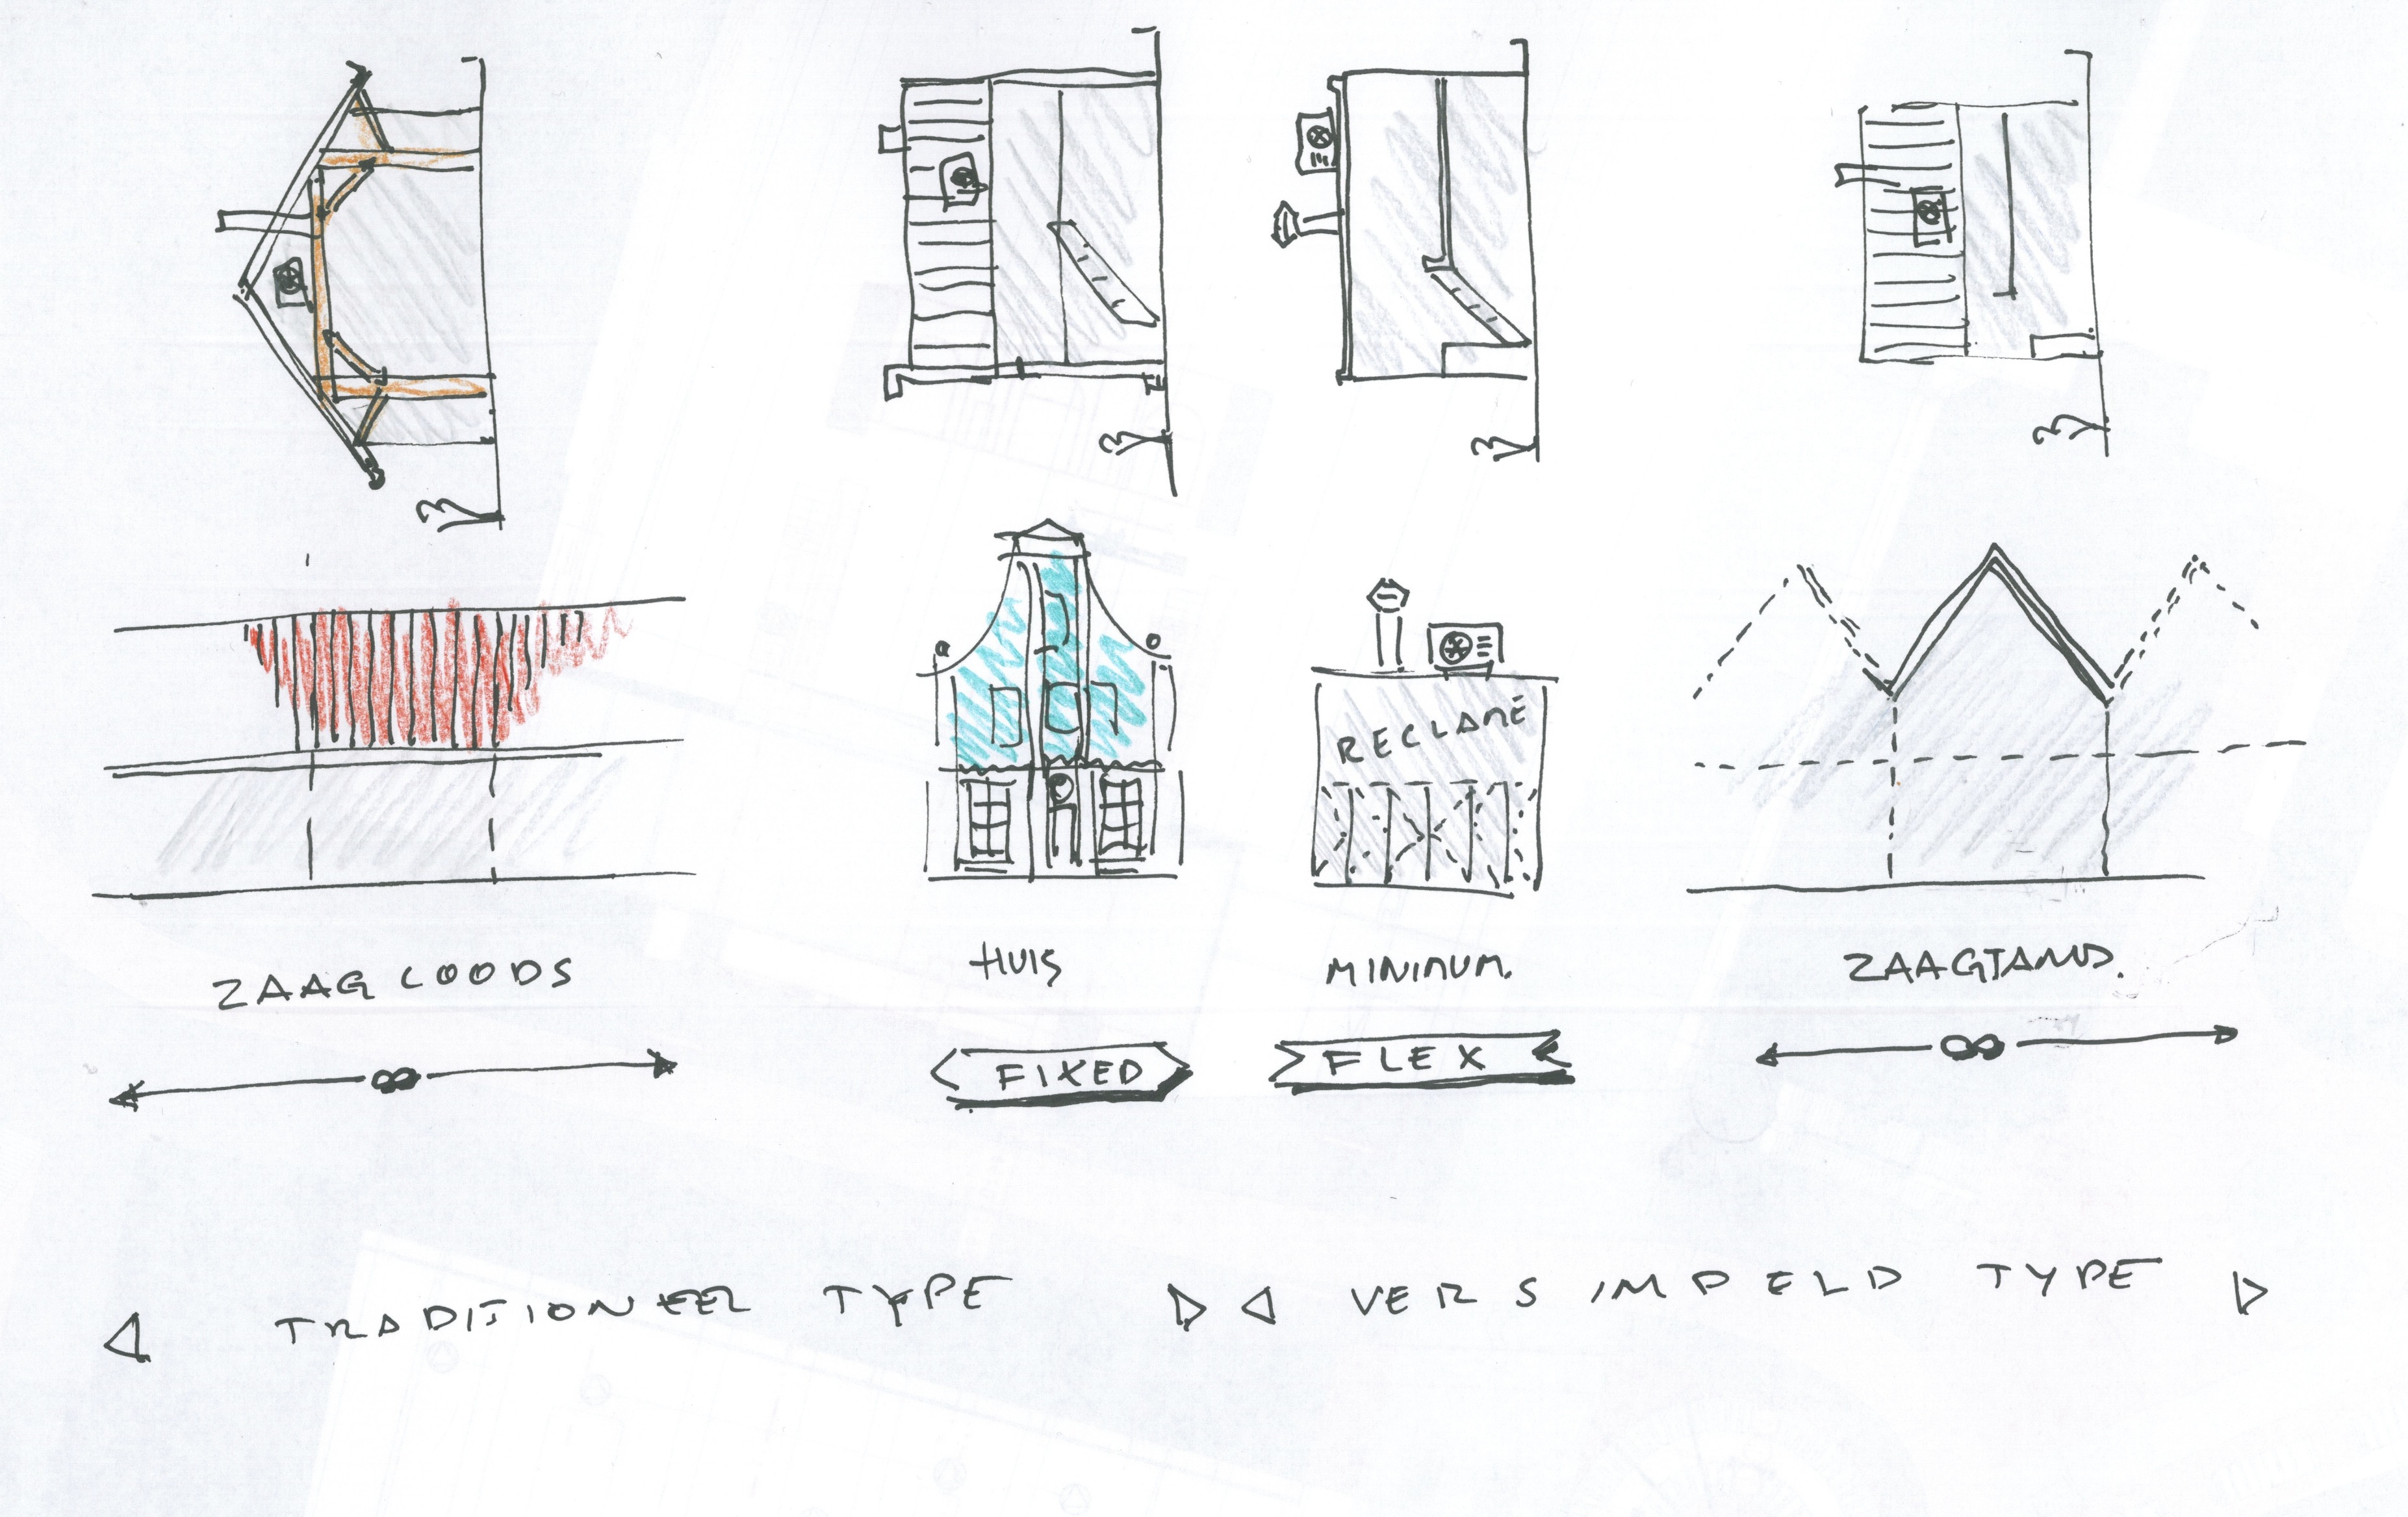 RECLAME
ZAAGLOODS
HUIS
MINIMUM.
ZAAGTAND.
∞
FIXED
FLEX
∞
TRADITIONEEL TYPE
VERSIMPELD TYPE